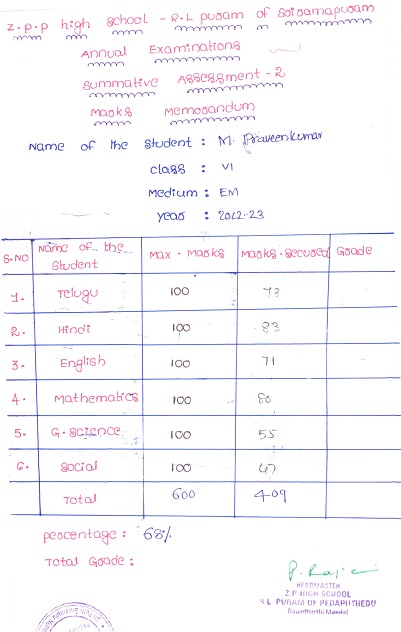 Z.P.P high school - R.L puram of Soisamapuram
Annual Examinations
Summative Assessment - 2
Marks Memorandum
Name of the Student : M. Praveenkumar
class : VI
Medium : EM
year : 2022-23
S.NO Name of the Student Max - Marks Marks - secured Grade
1. Telugu 100 73
2. Hindi 100 83
3. English 100 71
4. Mathematics 100 80
5. G. Science 100 55
6. Social 100 47
Total 600 409
percentage : 68%
Total Grade :
HEADMASTER
Z.P HIGH SCHOOL
R L PURAM OF PEDAPUTHEDU
Dagadharthi Mandal